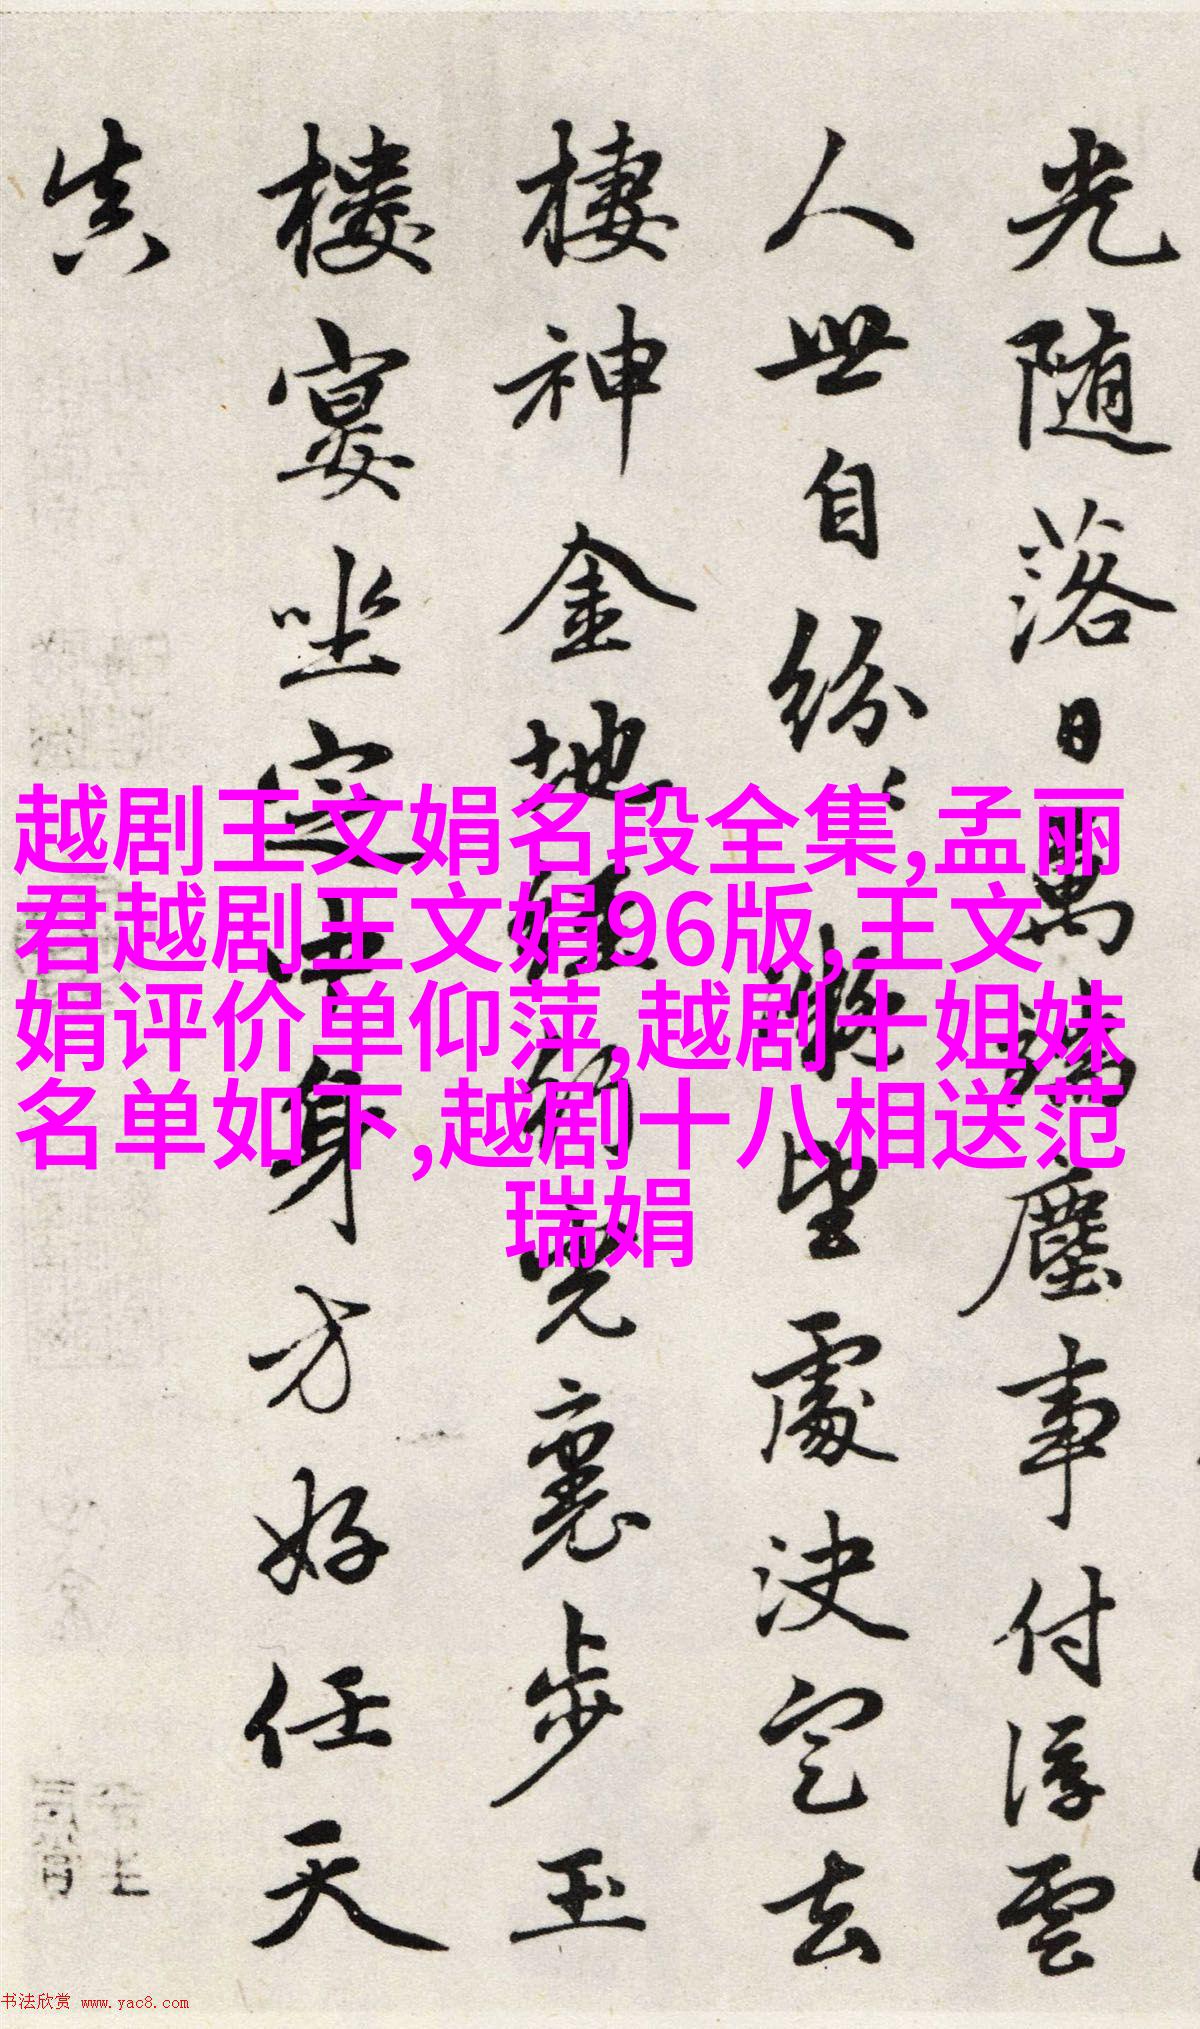 光随落日萬端塵事付浮雲
人世自紛〻凝望處决定去
棲神金地經行光裏步玉
樓宴坐定中身方好任天
真
越剧王文娟名段全集,孟丽
君越剧王文娟96版,王文
娟评价单仰萍,越剧十姐妹
名单如下,越剧十八相送范
瑞娟
书法欣赏 www.yac8.com